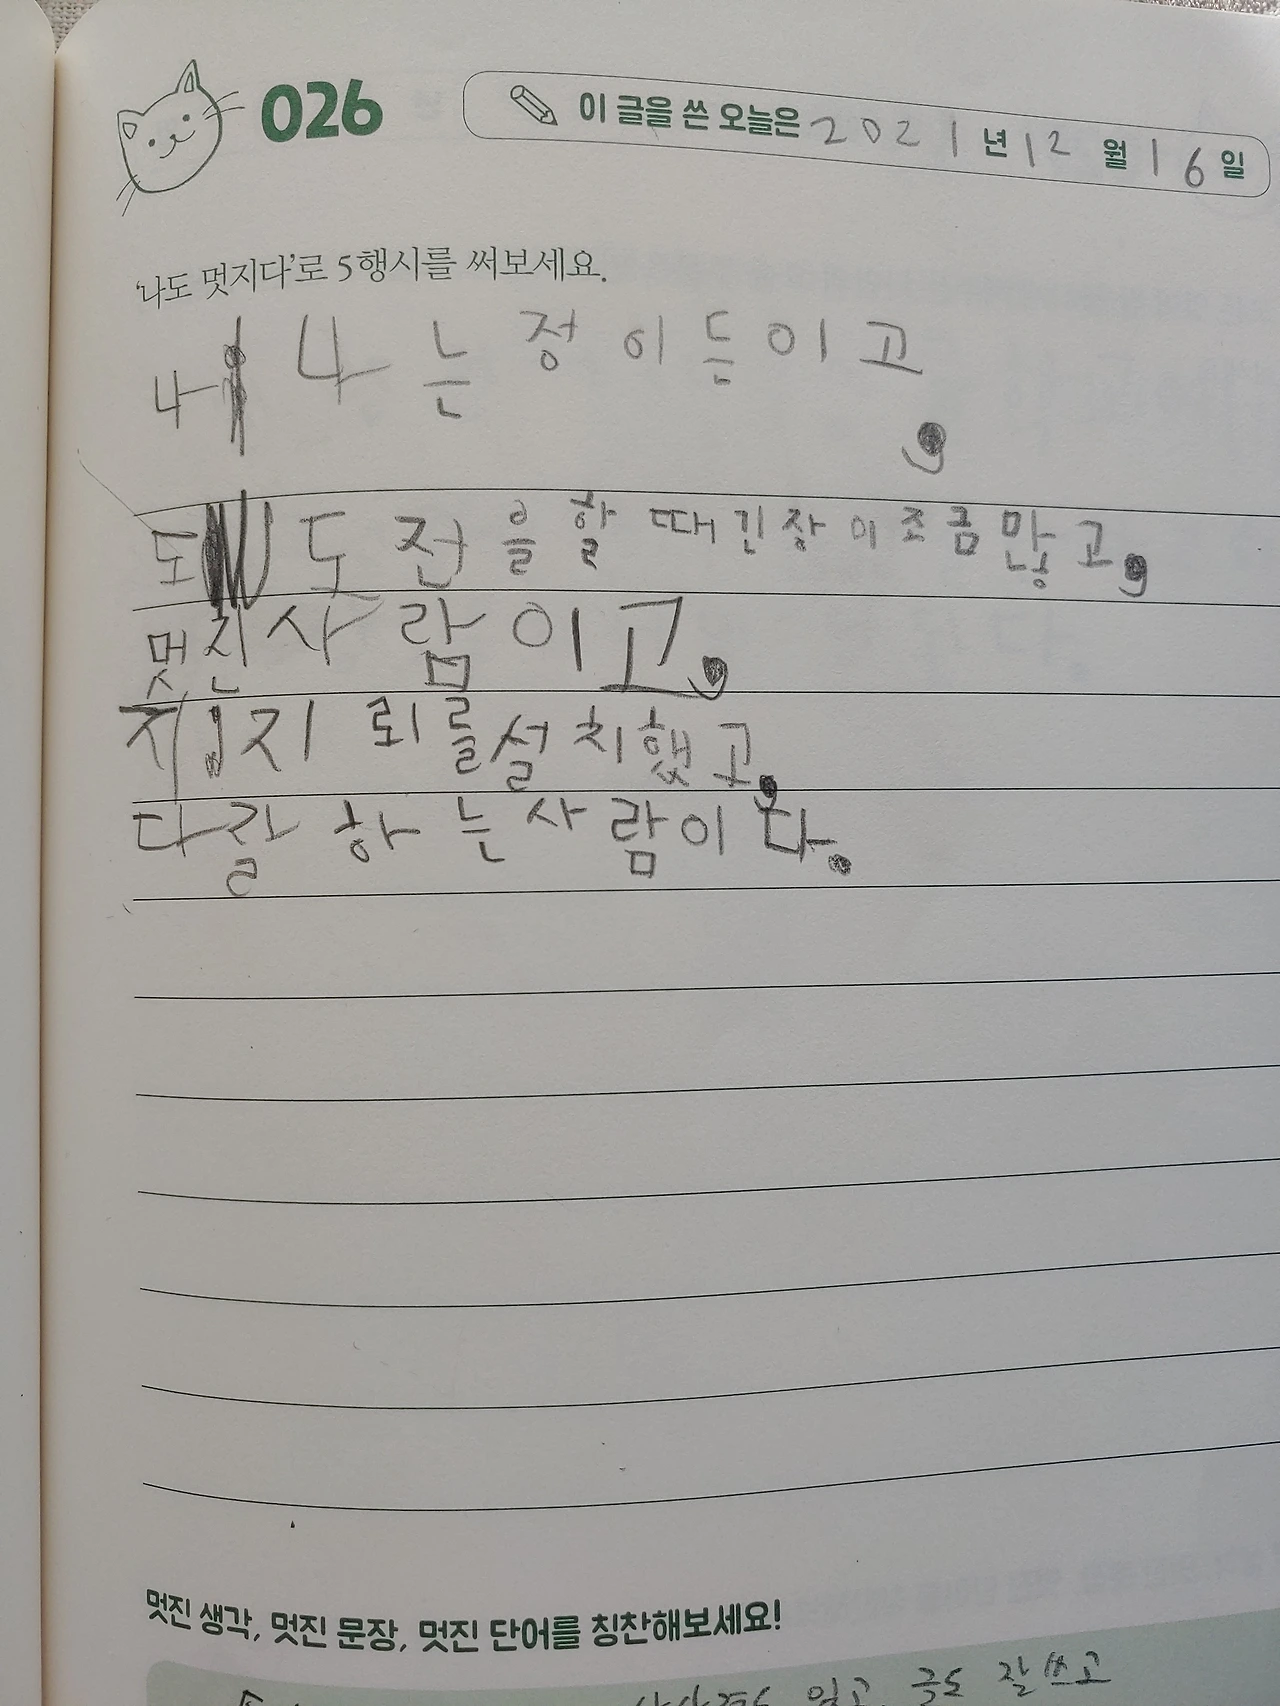 026
이 글을 쓴 오늘은 2021년 12월 16일
'나도 멋지다'로 5행시를 써보세요.
나 나는 정이든이고,
도 도전을 할 때 긴장이 조금 많고,
멋진 사람이고,
지 지뢰를 설치했고,
다 잘하는 사람이다.
멋진 생각, 멋진 문장, 멋진 단어를 칭찬해보세요!
있고 글도 잘 쓰고